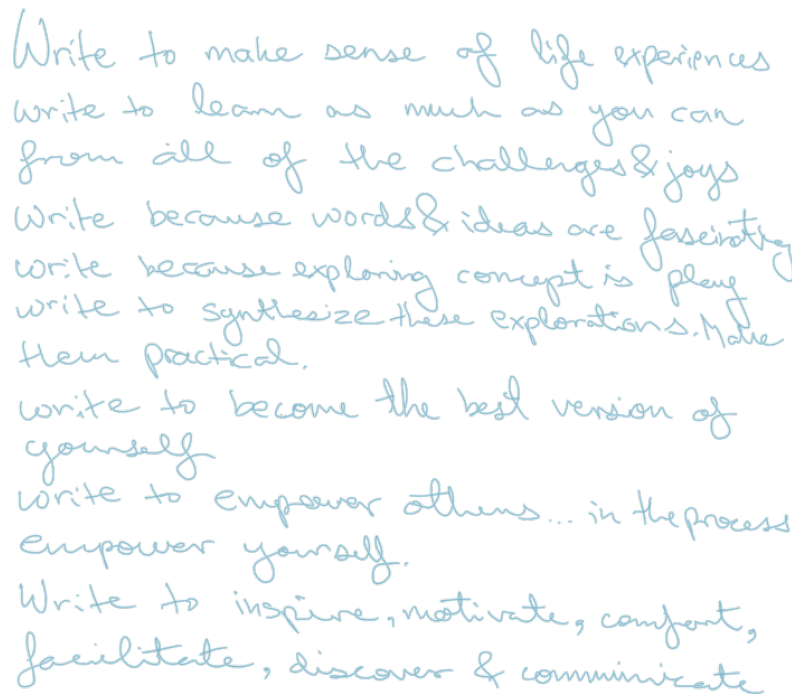 Write to make sense of life experiences
write to learn as much as you can
from all of the challenges & joys
Write because words & ideas are fascinating
write because exploring concept is play
write to synthesize these explorations. Make
them practical.
write to become the best version of
yourself
write to empower others... in the process
empower yourself.
Write to inspire, motivate, comfort,
facilitate, discover & communicate